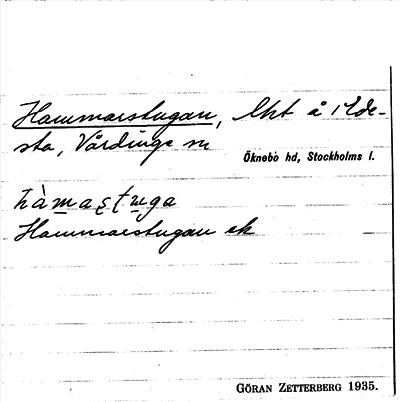 Hammarstugan, lht å Ede-
sta, Vårdinge sn
Öknebo hd, Stockholms l.
hàmastuga
Hammarstugan ek
GÖRAN ZETTERBERG 1935.